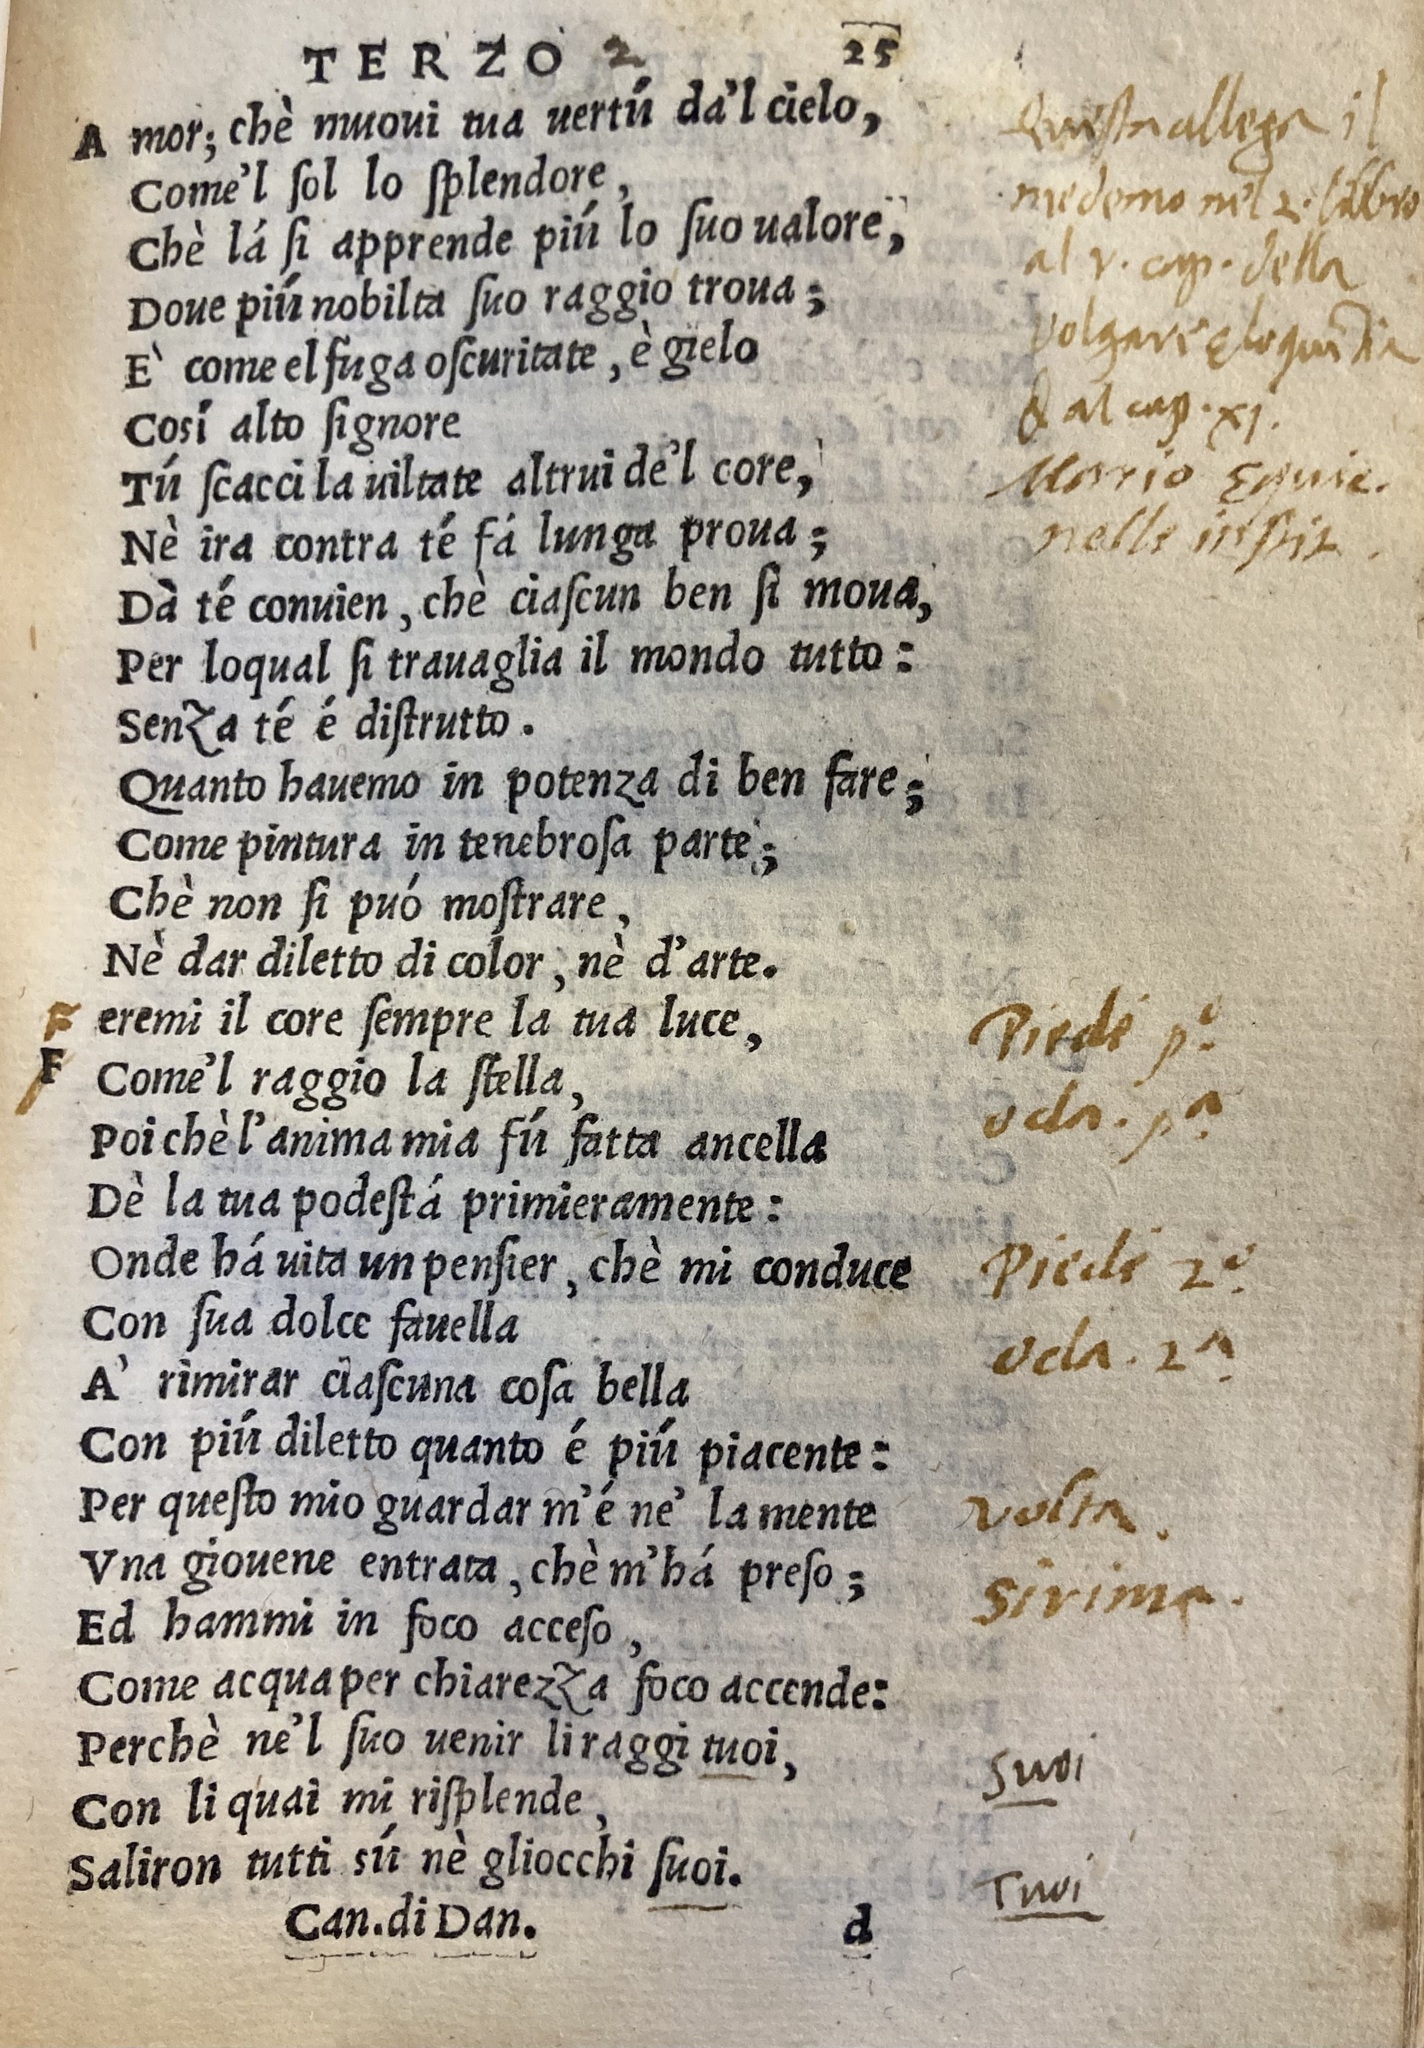 TERZO 2 25
Amor; chè muoui tua uertú da'l cielo,
Come'l ſol lo ſplendore,
Chè lá ſi apprende piú lo ſuo ualore,
Doue piú nobilta ſuo raggio troua;
E` come el fuga oſcuritate, è gielo
Cosí alto ſignore
Tú ſcacci la uiltate altrui de'l core,
Nè ira contra té fá lunga proua;
Dà té conuien, chè ciaſcun ben ſi moua,
Per loqual ſi trauaglia il mondo tutto:
Senza té é diſtrutto.
Quanto hauemo in potenza di ben fare;
Come pintura in tenebroſa parte;
Chè non ſi puó moſtrare,
Nè dar diletto di color, nè d'arte.
F eremi il core ſempre la tua luce,
F Come'l raggio la ſtella,
Poi chè l'anima mia fú fatta ancella
Dè la tua podeſtá primieramente:
Onde há uita un penſier, chè mi conduce
Con ſua dolce fauella
A' rimirar ciaſcuna coſa bella
Con piú diletto quanto é piú piacente:
Per queſto mio guardar m'é ne' la mente
Vna giouene entrata, chè m'há preſo;
Ed hammi in foco acceſo,
Come acqua per chiarezza foco accende:
Perchè ne'l ſuo uenir li raggi tuoi,
Con li quai mi riſplende,
Saliron tutti sú nè gliocchi ſuoi.
Can. di Dan. d
Questa allega il
medemo nel 2. libbro
al v. cap. della
volgare eloquentia
& al cap. XI.
Mario Equic.
nelle instit.
Piede pº.
oda. pª.
Piede 2º.
oda. 2ª.
volta.
Sirima.
suoi
Tuoi